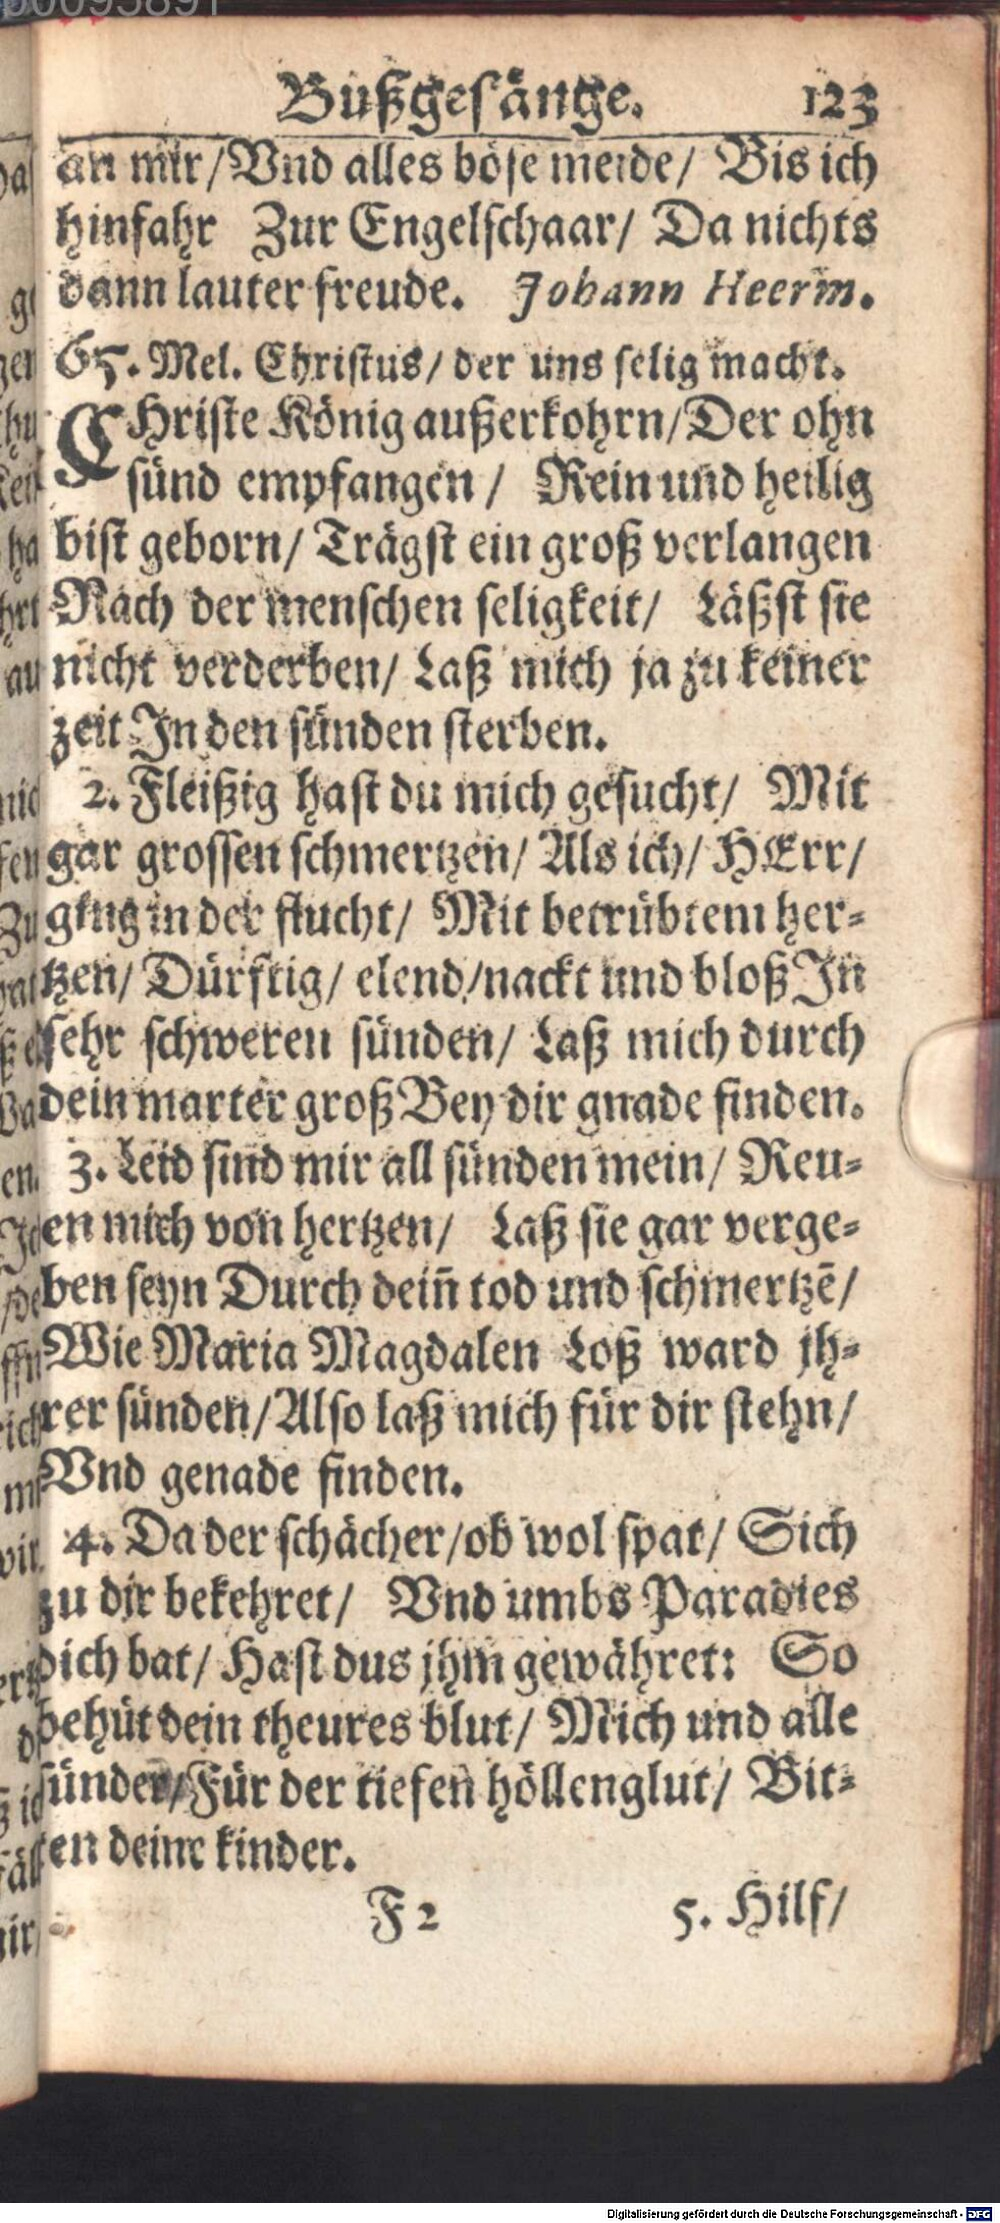 Bußgesänge. 123
an mir/ Vnd alles böse meide/ Bis ich
hinfahr Zur Engelschaar/ Da nichts
dann lauter freude. Johann Heerm.
65. Mel. Christus/ der uns selig macht.
CHriste König außerkohrn/ Der ohn
sünd empfangen/ Rein und heilig
bist geborn/ Trägst ein groß verlangen
Nach der menschen seligkeit/ Läßst sie
nicht verderben/ Laß mich ja zu keiner
zeit In den sünden sterben.
2. Fleißig hast du mich gesucht/ Mit
gar grossen schmertzen/ Als ich/ HErr/
ging in der flucht/ Mit betrübtem her-
tzen/ Dürftig/ elend/ nackt und bloß In
sehr schweren sünden/ Laß mich durch
dein marter groß Bey dir gnade finden.
3. Leid sind mir all sünden mein/ Reu-
en mich von hertzen/ Laß sie gar verge-
ben seyn Durch dein̄ tod und schmertzē/
Wie Maria Magdalen Loß ward jh-
rer sünden/ Also laß mich für dir stehn/
Vnd genade finden.
4. Da der schächer/ ob wol spat/ Sich
zu dir bekehret/ Vnd umbs Paradies
dich bat/ Hast dus jhm gewähret: So
behüt dein theures blut/ Mich und alle
sünder/ Für der tiefen höllenglut/ Bit-
ten deine kinder.
F 2 5. Hilf/
Digitalisierung gefördert durch die Deutsche Forschungsgemeinschaft - DFG